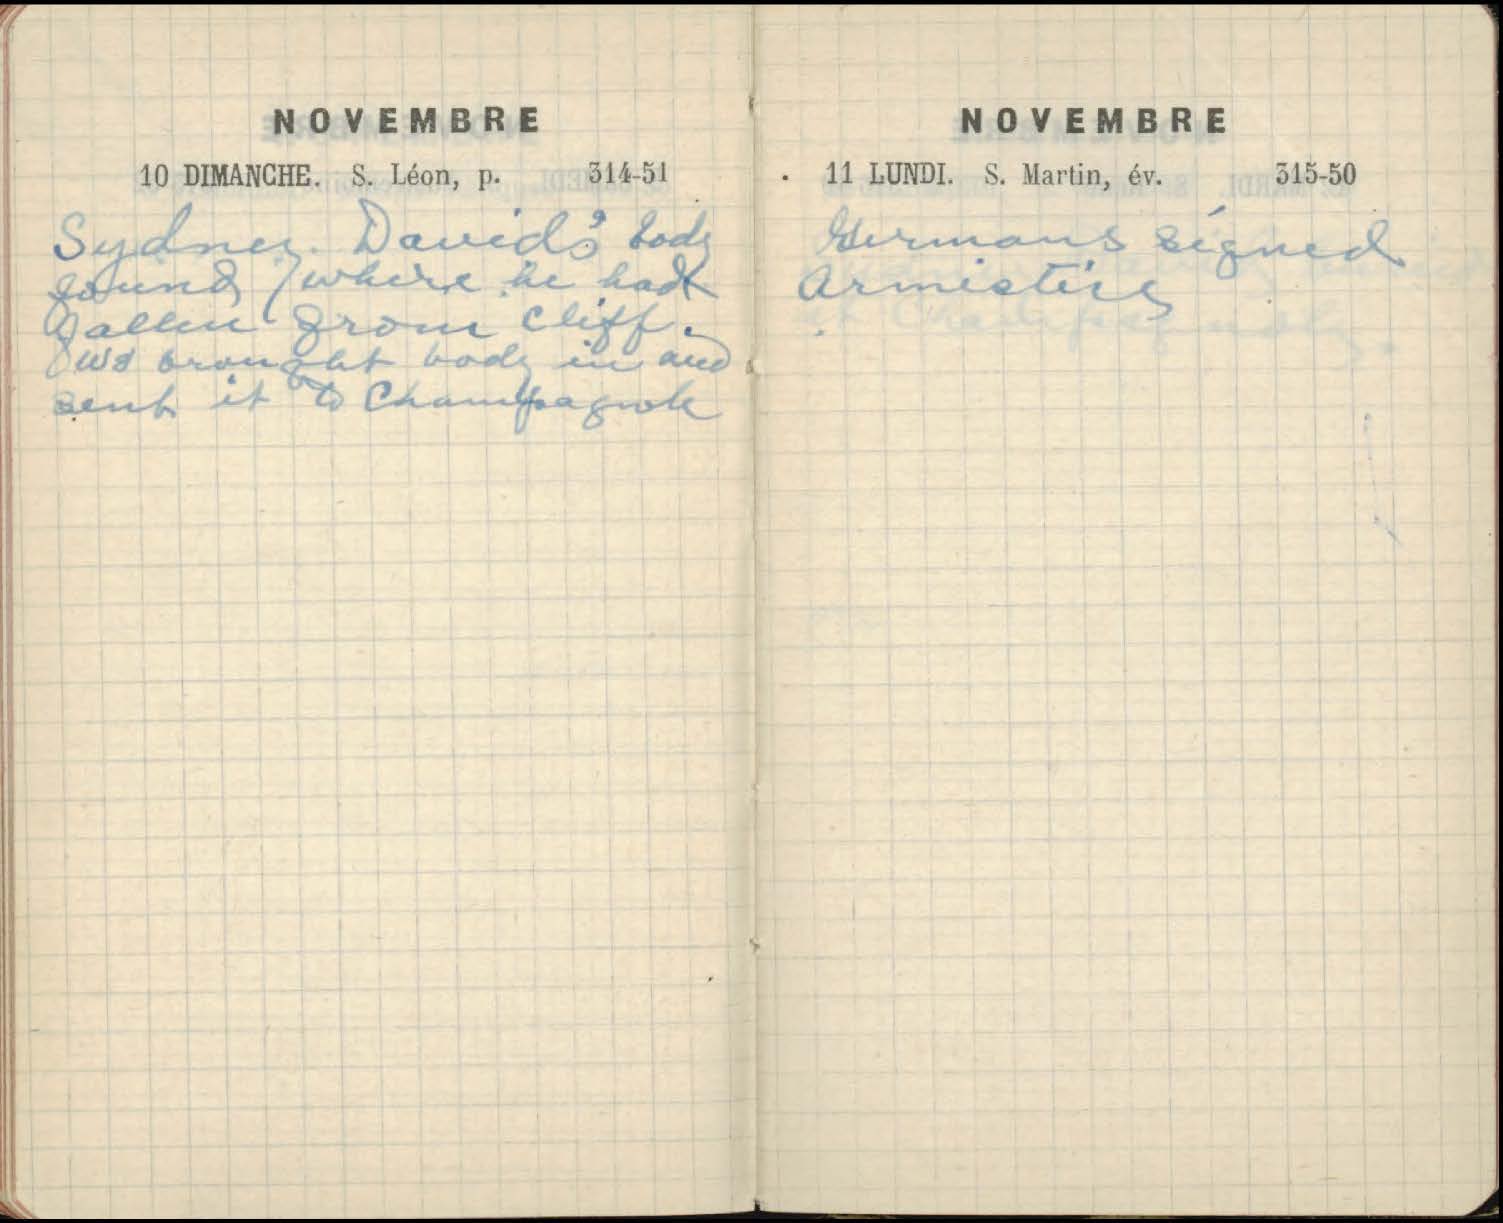 NOVEMBRE
10 DIMANCHE. S. Léon, p. 314-51
Sydney David's body
found where he had
fallen from cliff.
We brought body in and
sent it to Champagnole
NOVEMBRE
11 LUNDI. S. Martin, év. 315-50
Germans signed
Armistice